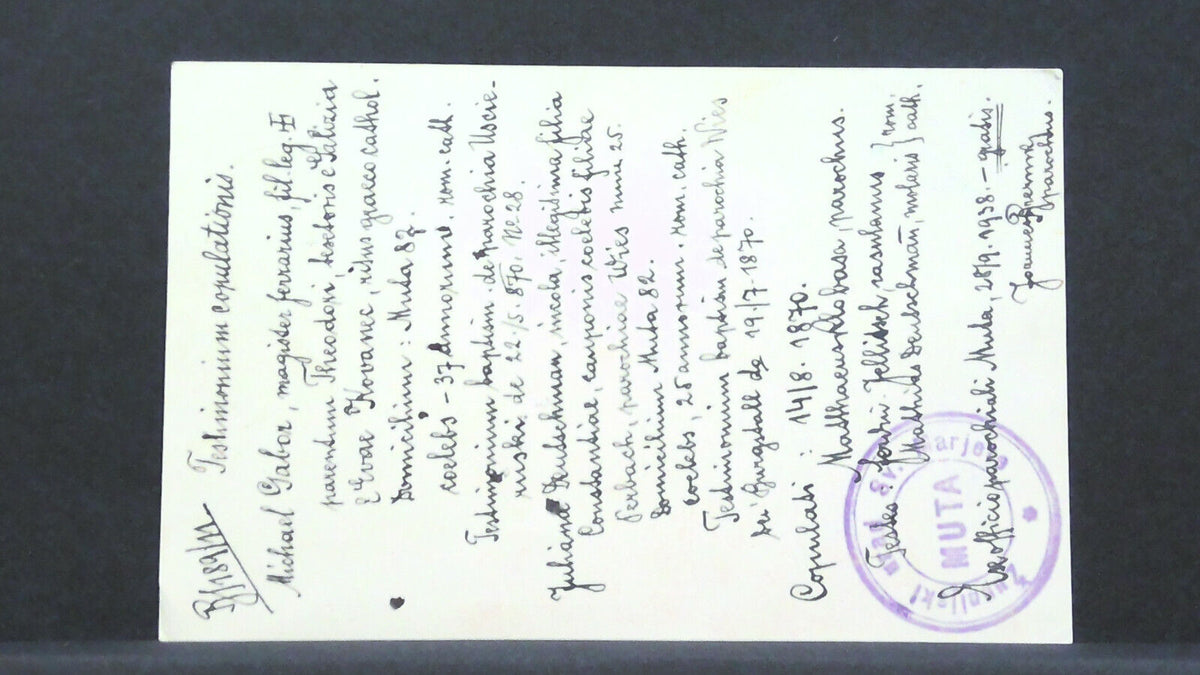 B/189/11
Testimonium copulationis.
Michael Gabor, magister ferrarius, fil. leg. ##
parentum Theodori, textoris e Galizia
& Evae Kovanec, ritus graeco cathol.
Domicilium: Muta 87.
coelebs - 37 annorum. rom. cath.
Testimonium baptism de parochia Uscie-
ruski de 22./5. 870. No 28.
Juliana Deutschman, incola, illegitima filia
Constantiae, cauponis coelebis filiae
Perbach, parochiae Wies num 25.
Domicilium Muta 82.
coelebs, 25 annorum. rom. cath.
Testimonium baptism de parochia Wies
bei Burgstall de 19./7. 1870.
Copulati: 14/8. 1870.
Matthaeus Globasa, parochus.
Testes: Jellitsch, } rom.
Mathias Deutschman, molaris } cath.
Ex officio parochiali Muta, 28/9. 1938. - gratis.
Joannes
parochus.
Župnijski urad Sv. Marjete
MUTA